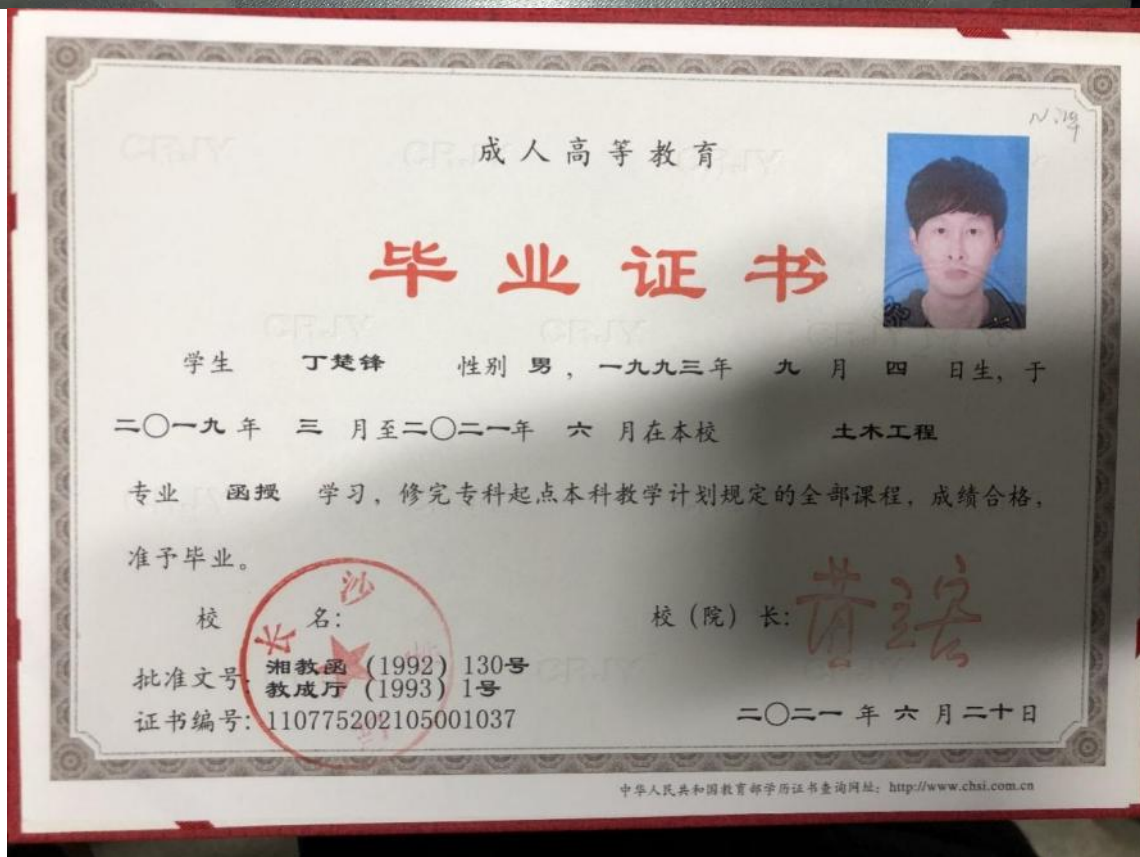 成人高等教育
毕业证书
学生 丁楚锋 性别 男，一九九三年 九 月 四 日生，于
二〇一九年 三 月至二〇二一年 六 月在本校 土木工程
专业 函授 学习，修完专科起点本科教学计划规定的全部课程，成绩合格，
准予毕业。
校 名： 校（院）长：
批准文号：湘教函（1992）130号
教成厅（1993）1号
证书编号：110775202105001037
二〇二一年 六 月二十日
中华人民共和国教育部学历证书查询网址：http://www.chsi.com.cn
长沙
CRJY